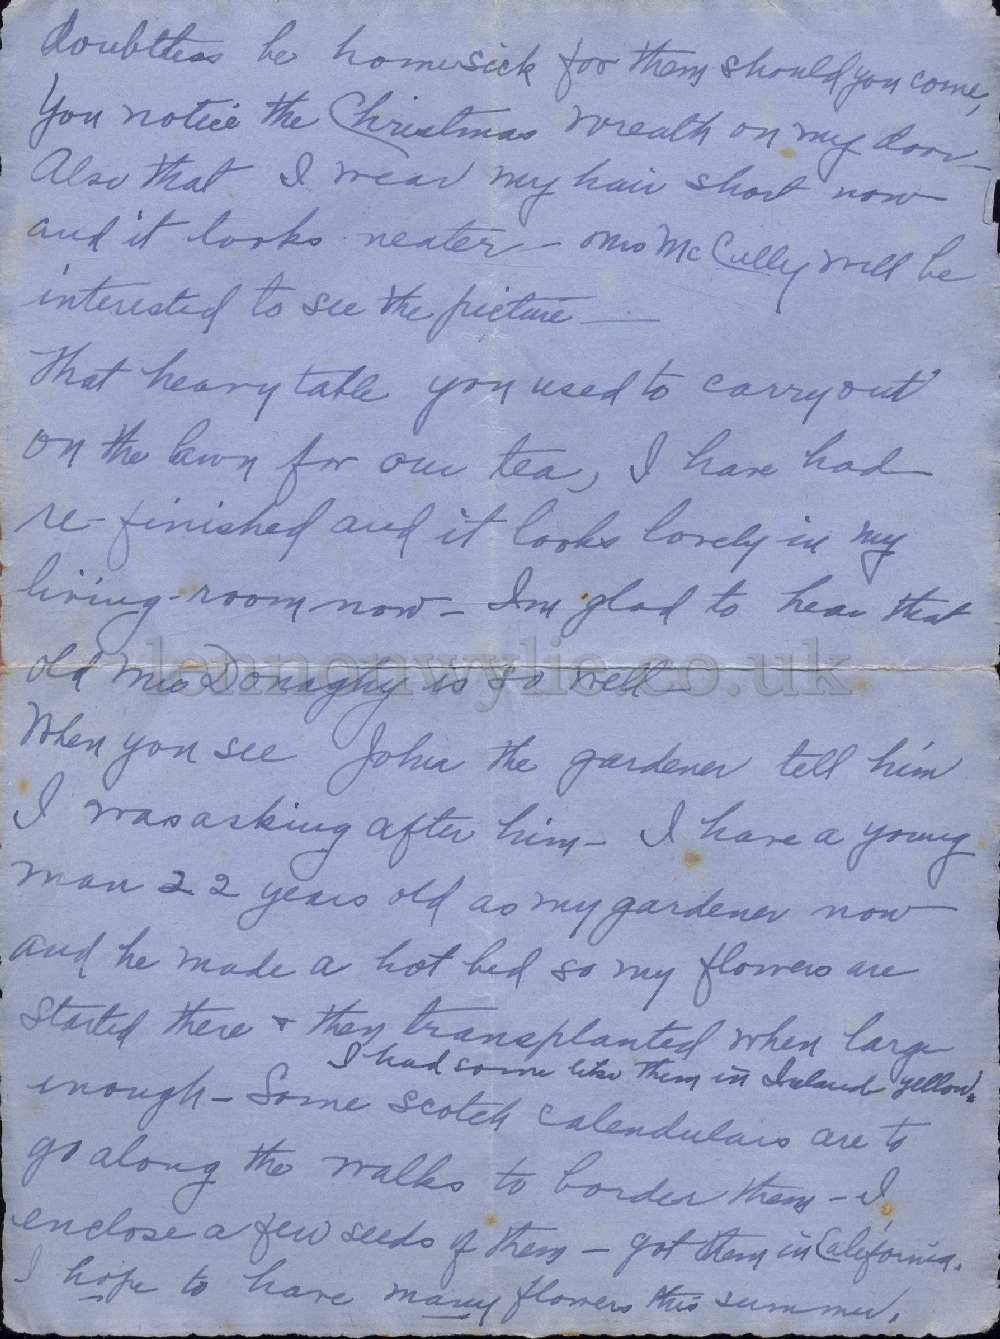 doubtless be homesick for them should you come,
You notice the Christmas wreath on my door -
Also that I wear my hair short now
and it looks neater - Mrs McCully will be
interested to see the picture -
That heavy table you used to carry out
on the lawn for our tea, I have had
re-finished and it looks lovely in my
living-room now - I'm glad to hear that
old Mrs Donaghy is so well -
lennonwylie.co.uk
When you see John the gardener tell him
I was asking after him - I have a young
man 22 years old as my gardener now
and he made a hot bed so my flowers are
started there & then transplanted when large
I had some like them in Ireland yellow.
enough - Some scotch calendulars are to
go along the walks to border them - I
enclose a few seeds of them - got them in California.
I hope to have many flowers this summer.